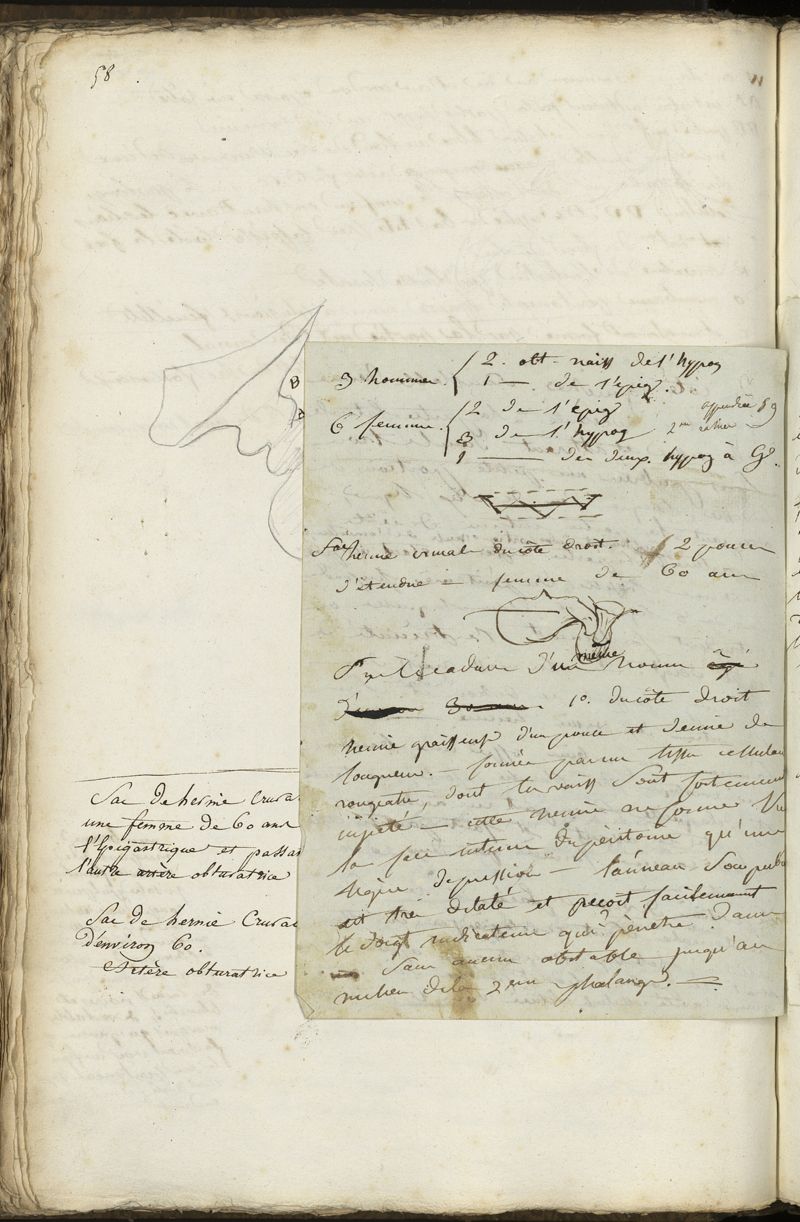 58
3 hommes. { 2. obt. naiss de l'hypog
1 — de l'épig.
6 femmes. { 2 de l'épig
3 de l'hypog
1 — des deux. hypog à G.
2 pouces
Sac hernie crurale du côté droit.
d'étendue — femme de 60 ans
même
Sur le cadavre d'un homme âgé
30 ans. 1o. du côté droit
hernie graisseuse d'un pouce et demie de
longueur. — formée par un tissu cellulaire
rougeatre, dont les vaiss sont fortement
injecté — cette hernie ne forme
la face interne du péritoine qu'une
légère depression — l'anneau
est très dilaté et reçoit facilement
le doigt indicateur qui pénètre dans
sans aucun obstacle jusqu'au
milieu de la 2eme phalange. —
Sac de hernie Crura
une femme de 60 ans
l'Epigastrique et passa
l'autre artère obturatrice
Sac de hernie Crura
d'environ 60.
Artère obturatrice
B
B